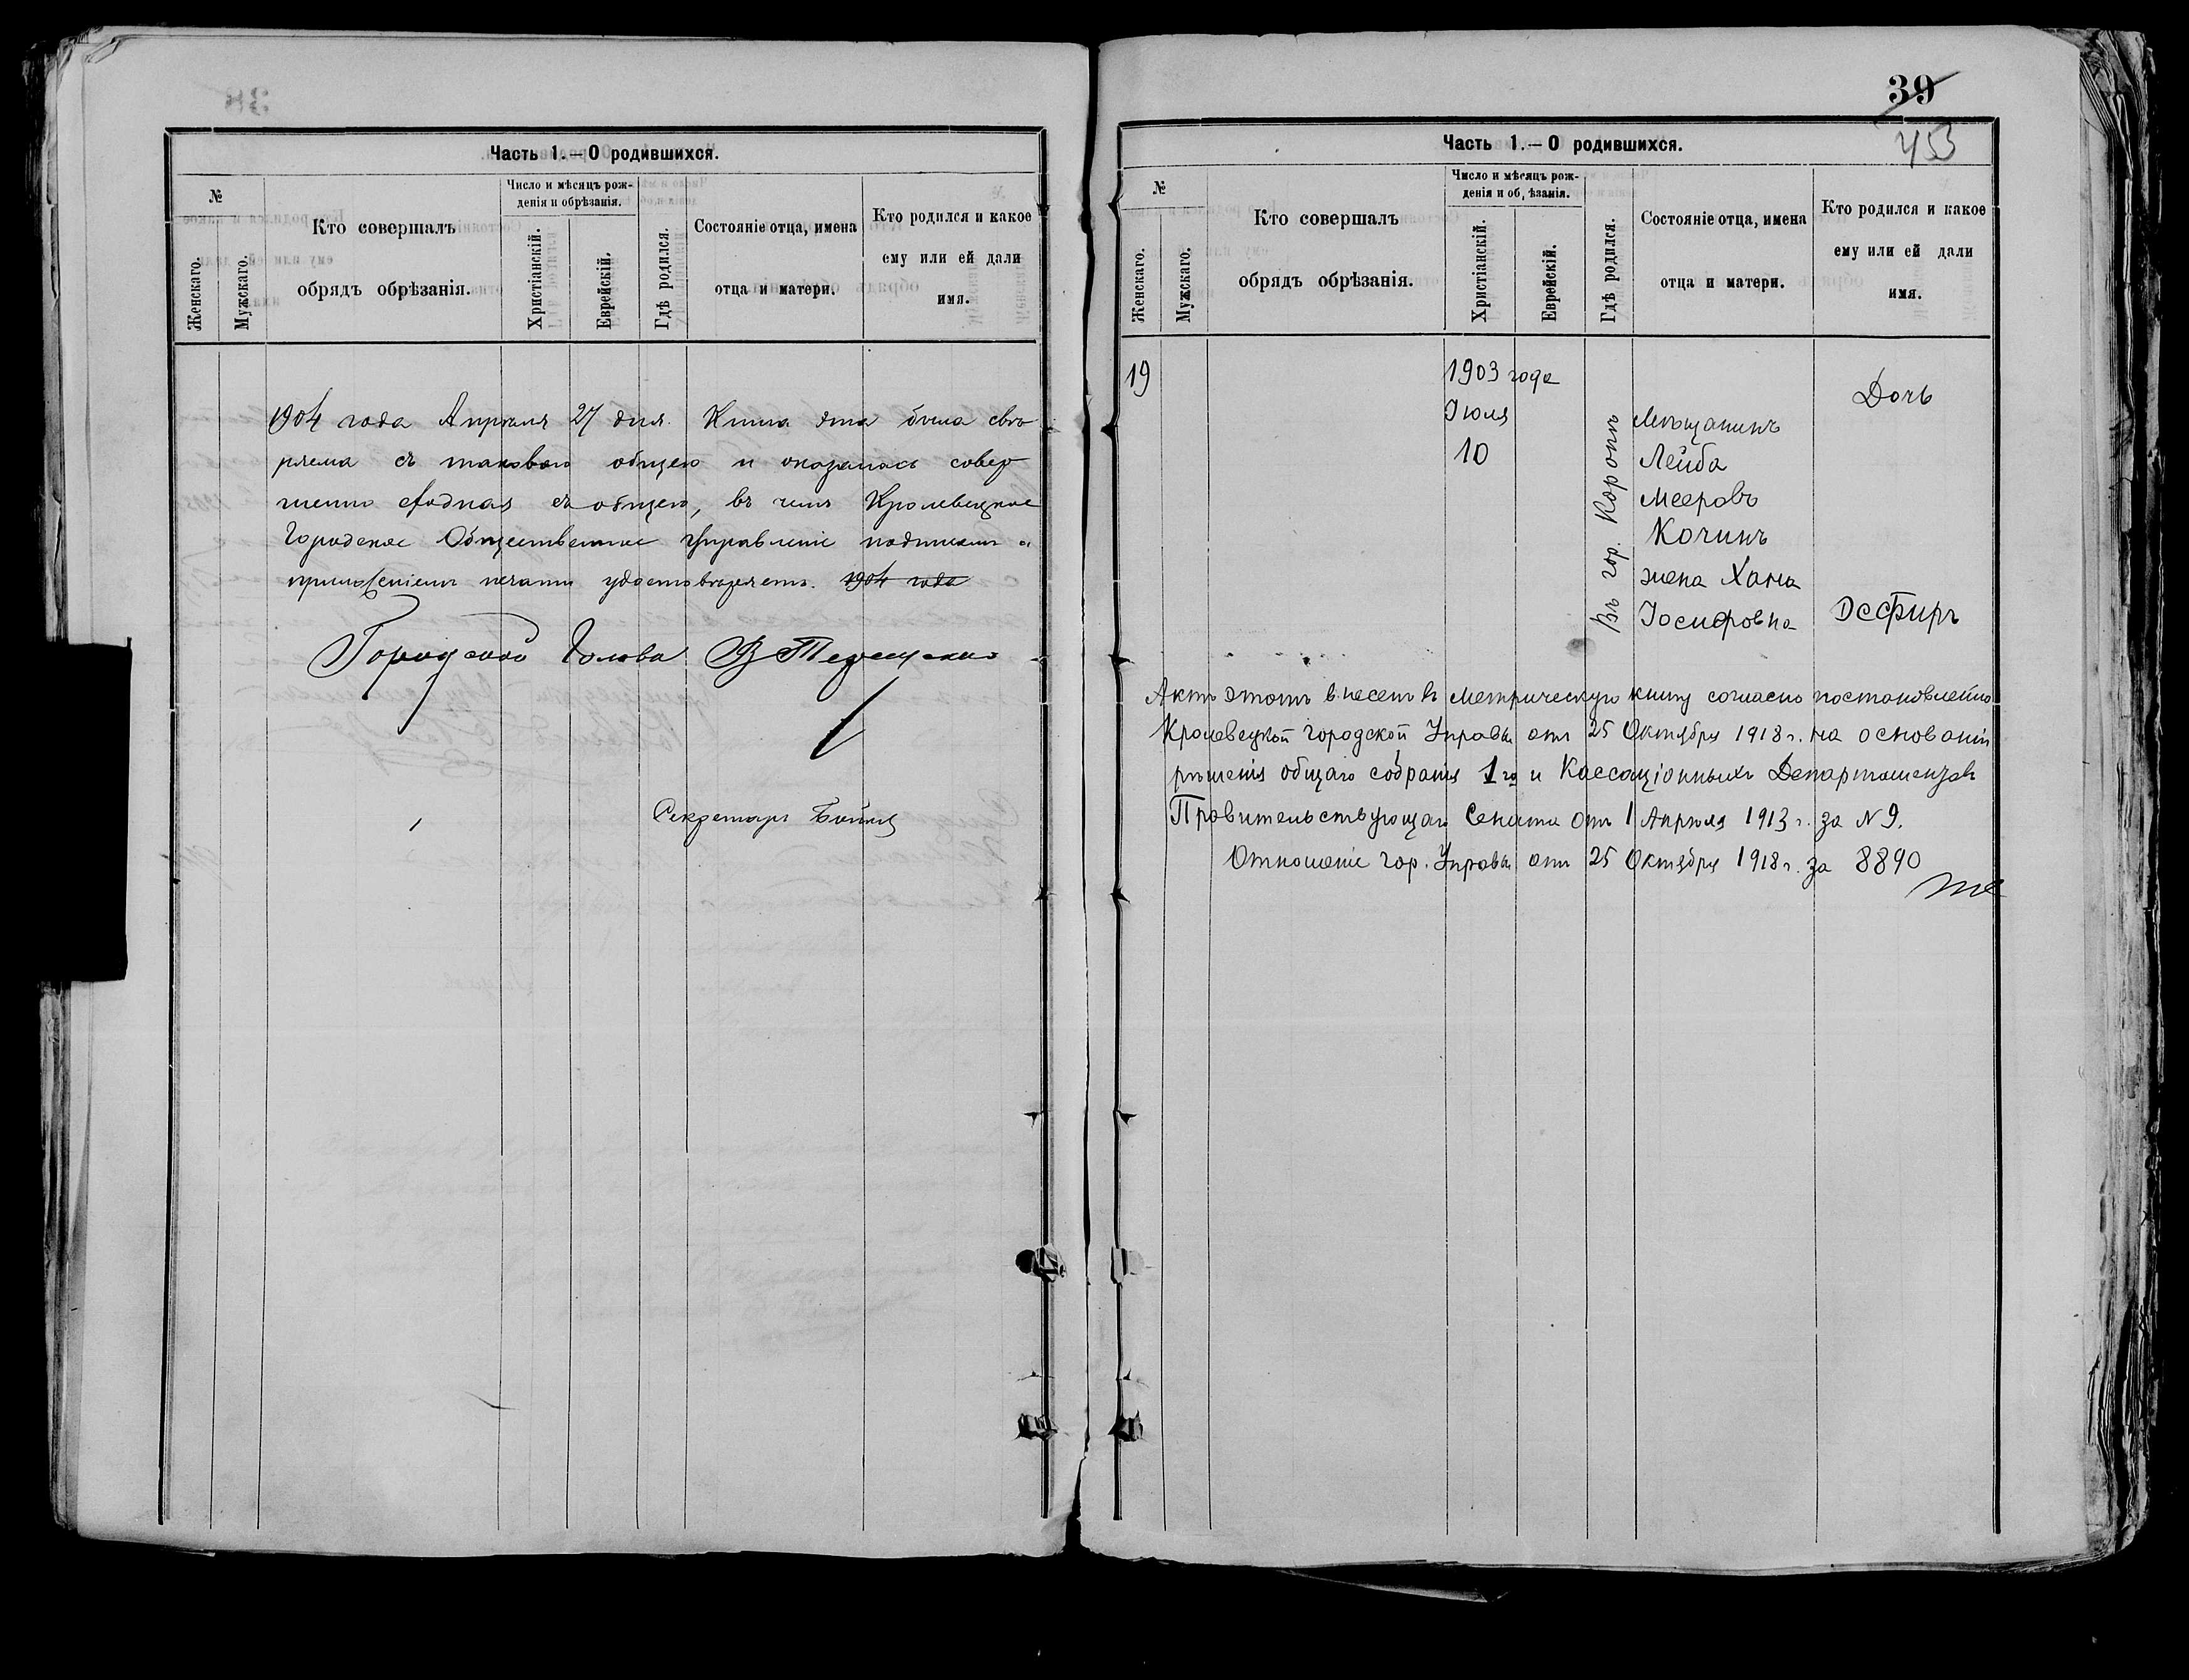 Часть 1.—О родившихся.
№
Женскаго.
Мужскаго.
Кто совершалъ
обрядъ обрѣзанія.
Число и мѣсяцъ рож-
денія и обрѣзанія.
Христіанскій.
Еврейскій.
Гдѣ родился.
Состояніе отца, имена
отца и матери.
Кто родился и какое
ему или ей дали
имя.
1904 года Апрѣля 27 дня. Книга эта была свѣ
ряема съ таковою общею и оказалась совер
шенно сходная съ общею, въ чемъ Кролевецкое
Городское Общественное Управленіе подписью и
приложеніемъ печати удостовѣряетъ. 1904 года
Городской Голова В
Секретарь
39
453
Часть 1.—О родившихся.
№
Женскаго.
Мужскаго.
Кто совершалъ
обрядъ обрѣзанія.
Число и мѣсяцъ рож-
денія и об, ѣзанія.
Христіанскій.
Еврейскій.
Гдѣ родился.
Состояніе отца, имена
отца и матери.
Кто родился и какое
ему или ей дали
имя.
19
1903 года
Іюля
10
Въ гор. Коропѣ
Мѣщанинъ
Лейба
Мееровъ
Кочинъ
жена Хана
Іосифовна
Дочь
Эсфирь
Актъ этотъ внесенъ въ метрическую книгу согласно постановленію
Кролевецкой городской Управы отъ 25 Октября 1918 г. на основаніи
рѣшенія общаго собранія 1го и Кассаціонныхъ Департаментовъ
Правительствующаго Сената отъ 1 Апрѣля 1913 г. за N 9.
Отношеніе гор. Управы отъ 25 Октября 1918 г. за 8890